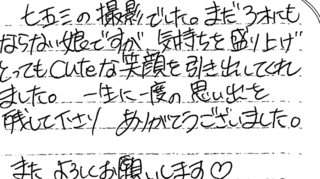 七五三の撮影でした。まだ3才にも
ならない娘ですが、気持ちを盛り上げ
とってもCuteな笑顔を引き出してくれ
ました。一生に一度の思い出を
残して下さり ありがとうございました。
また よろしくお願いします♡